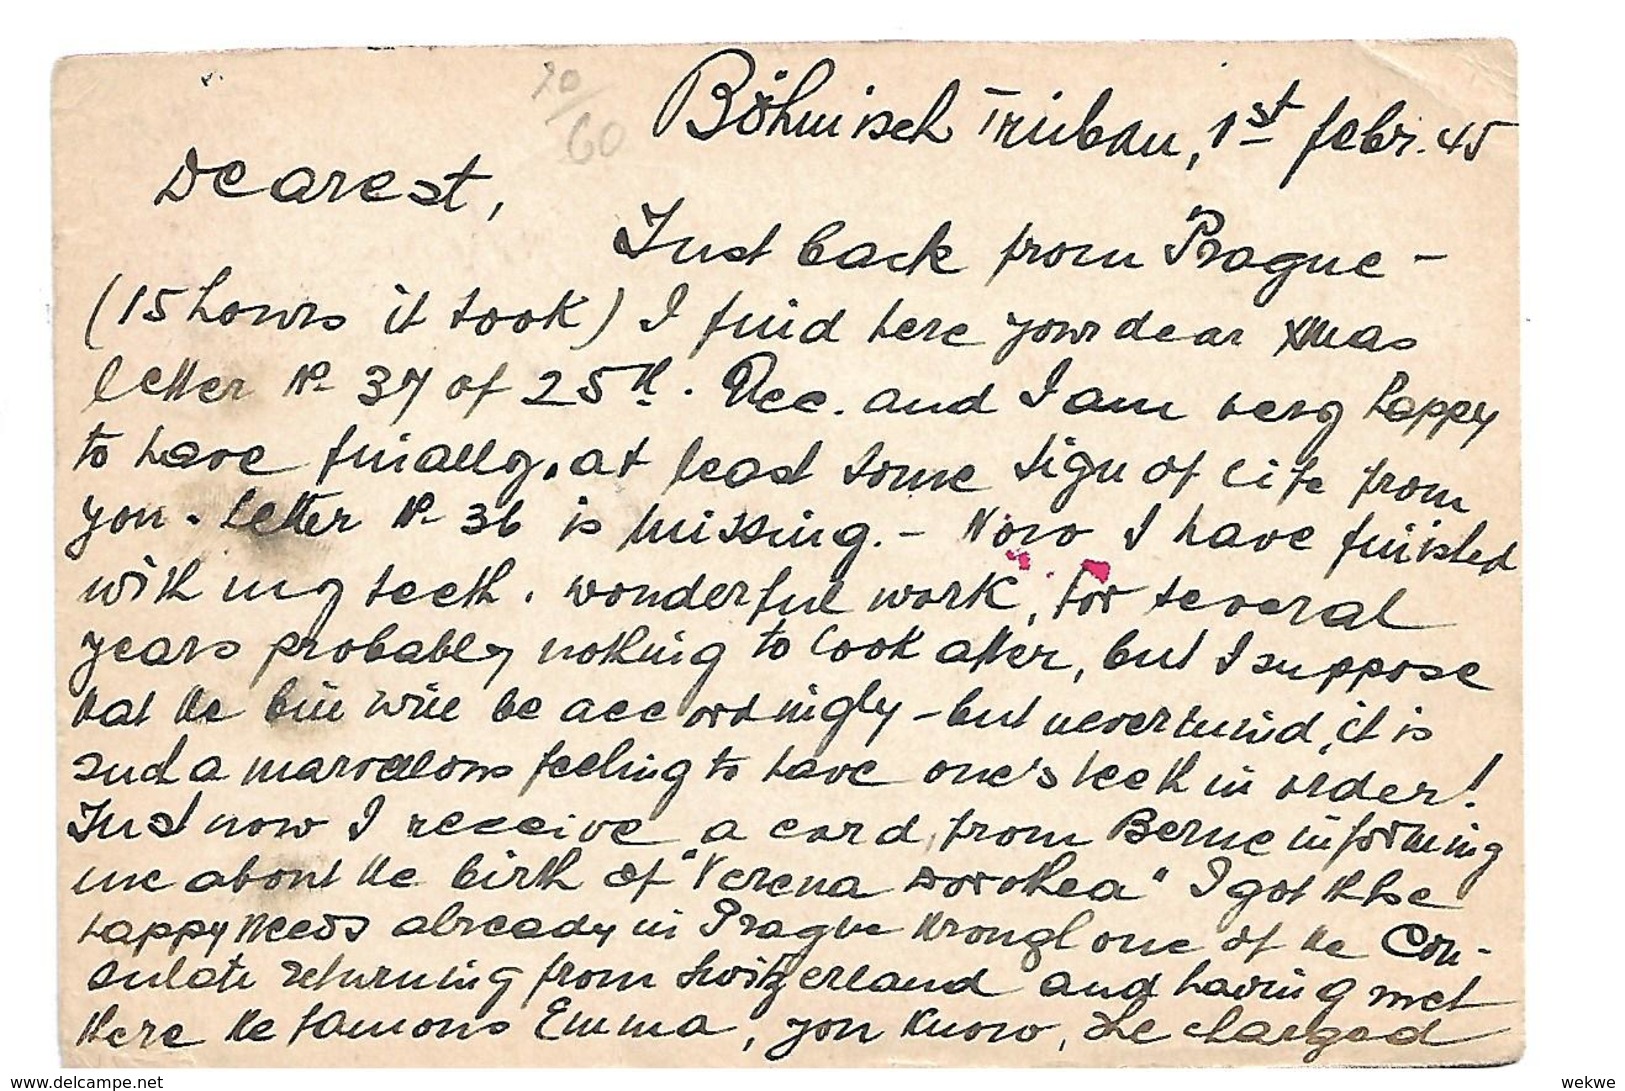 20/60
Böhmisch Trübau, 1st febr. 45
Dearest,
Just back from Prague -
(15 hours it took) I find here your dear Xmas
letter No 37 of 25th. Dec. and I am very happy
to have finally, at least some sign of life from
you. Letter No 36 is missing. - Now I have finished
with my teeth. wonderful work, for several
years probably nothing to look after, but I suppose
that the bill will be accordingly - but nevermind, it is
such a marvellous feeling to have one's teeth in order!
Just now I receive a card from Berne informing
me about the birth of "Verena Dorothea" I got these
happy news already in Prague through one of the Con-
sulate returning from Switzerland and having met
there the famous Emma, you know, she charged
www.delcampe.net
wekwe